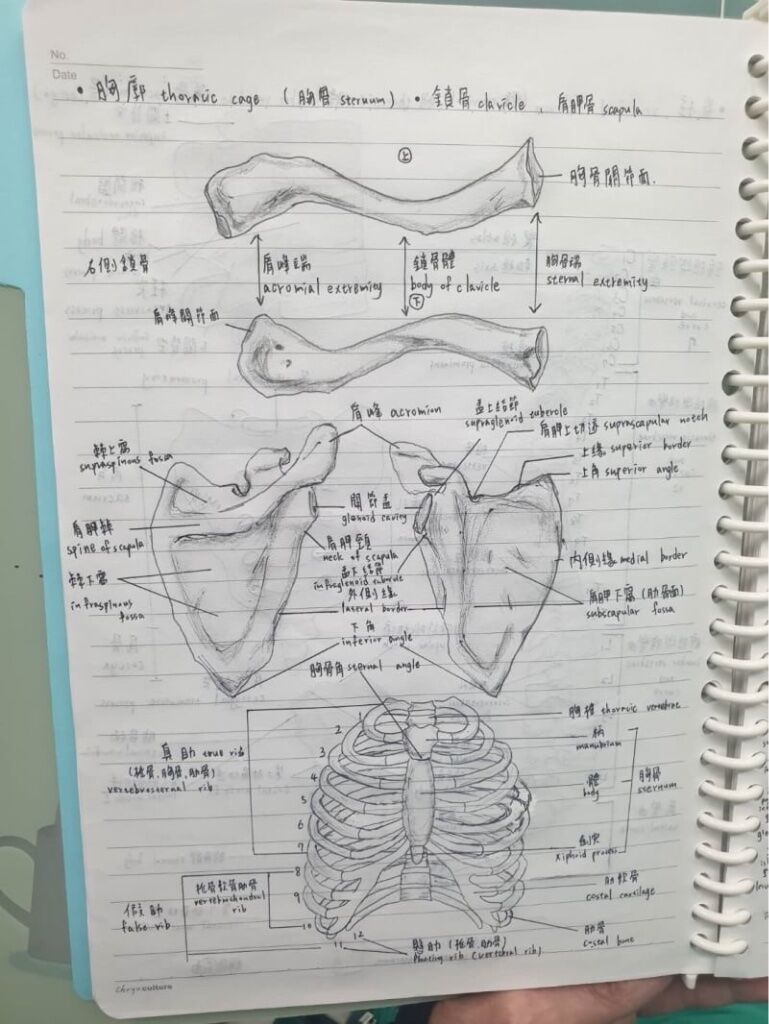 No.
Date
• 胸廓 thoracic cage (胸骨 sternum) • 鎖骨 clavicle 、肩胛骨 scapula
上
胸骨關節面
右側鎖骨
肩峰端
acromial extremity
鎖骨體
body of clavicle
下
胸骨端
sternal extremity
肩峰關節面
肩峰 acromion
盂上結節
supraglenoid tubercle
肩胛上切迹 suprascapular notch
上緣 superior border
上角 superior angle
棘上窩
supraspinous fossa
關節盂
glenoid cavity
肩胛棘
spine of scapula
肩胛頸
neck of scapula
盂下結節
infraglenoid tubercle
內側緣 medial border
棘下窩
infraspinous
fossa
外側緣
lateral border
肩胛下窩 (肋骨面)
subscapular fossa
下角
inferior angle
胸骨角 sternal angle
胸椎 thoracic vertebrae
1
2
3
4
5
6
7
8
9
10
11
12
真肋 true rib
(椎骨.胸骨.肋骨)
vertebrosternal rib
柄
manubrium
體
body
胸骨
sternum
劍突
xiphoid process
椎骨軟骨肋骨
vertebrochondral
rib
肋軟骨
costal cartilage
假肋
false rib
肋骨
costal bone
(椎骨.肋骨)
floating rib (vertebral rib)